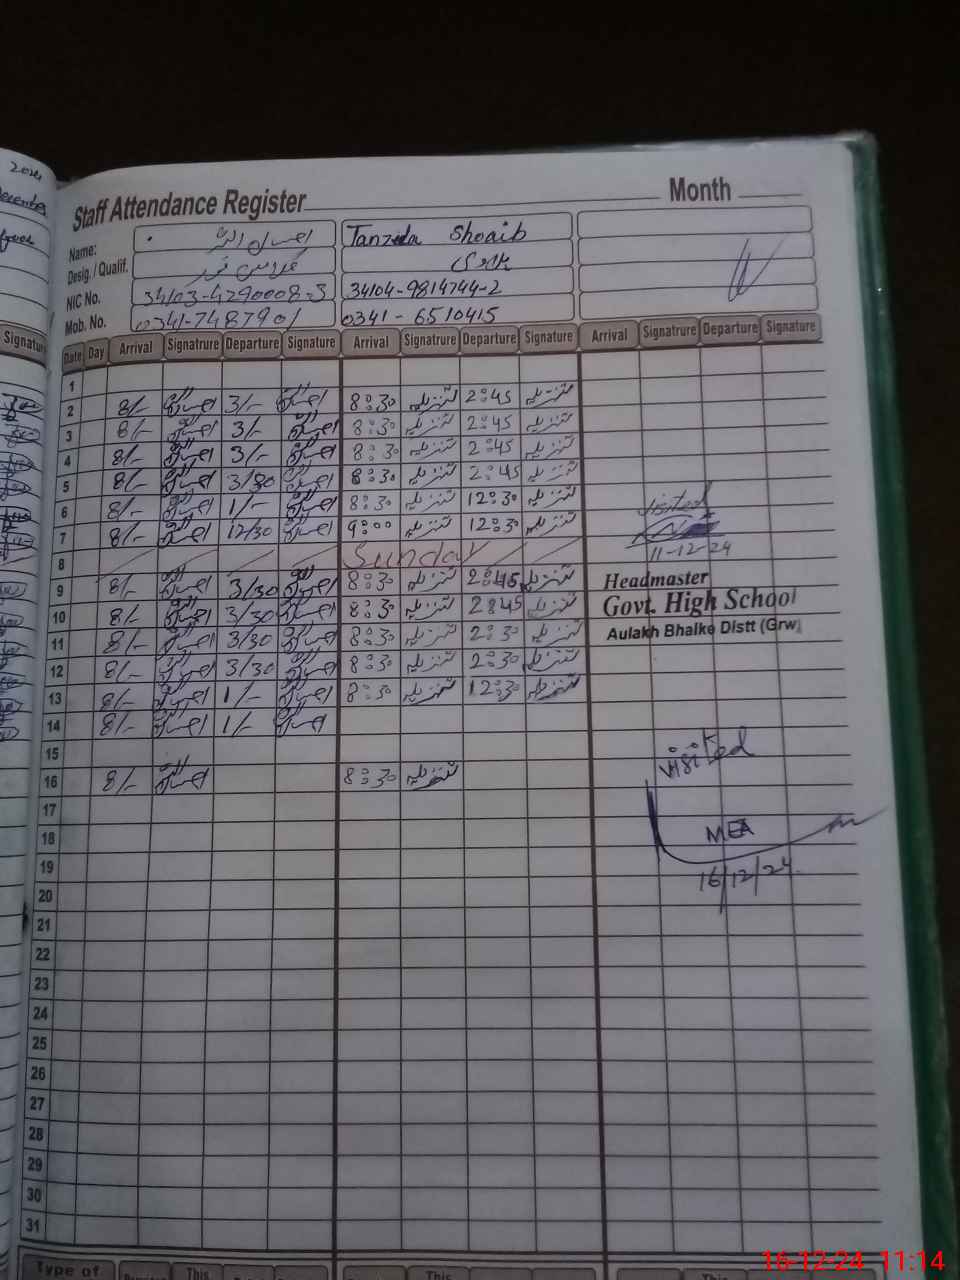 2024
December
Signature
Staff Attendance Register
Month
Name: احسان اللہ Tanzeela Shoaib
Desig. / Qualif.
NIC No. 34103-4290008-3 34104-9814744-2
Mob. No. 0341-7487901 0341-6510415
Date Day Arrival Signatrure Departure Signature Arrival Signatrure Departure Signature Arrival Signatrure Departure Signature
1
2 8/- احسان اللہ 3/- احسان اللہ 8:30 تنزیلہ 2:45 تنزیلہ
3 8/- احسان اللہ 3/- احسان اللہ 8:30 تنزیلہ 2:45 تنزیلہ
4 8/- احسان اللہ 3/- احسان اللہ 8:30 تنزیلہ 2:45 تنزیلہ
5 8/- احسان اللہ 3/30 احسان اللہ 8:30 تنزیلہ 2:45 تنزیلہ
6 8/- احسان اللہ 1/- احسان اللہ 8:30 تنزیلہ 12:30 تنزیلہ
7 8/- احسان اللہ 12/30 احسان اللہ 9:00 تنزیلہ 12:30 تنزیلہ
visited
11-12-24
8 Sunday
9 8/- احسان اللہ 3/30 احسان اللہ 8:30 تنزیلہ 2:45 تنزیلہ
Headmaster
10 8/- احسان اللہ 3/30 احسان اللہ 8:30 تنزیلہ 2:45 تنزیلہ
Govt. High School
11 8/- احسان اللہ 3/30 احسان اللہ 8:30 تنزیلہ 2:30 تنزیلہ
Aulakh Bhaike Distt (Grw)
12 8/- احسان اللہ 3/30 احسان اللہ 8:30 تنزیلہ 2:30 تنزیلہ
13 8/- احسان اللہ 1/- احسان اللہ 8:30 تنزیلہ 12:30 تنزیلہ
14 8/- احسان اللہ 1/- احسان اللہ
15
visited
16 8/- احسان اللہ 8:30 تنزیلہ
17
18
MEA
19
16/12/24
20
21
22
23
24
25
26
27
28
29
30
31
Type of
This
This
This
16-12-24 11:14